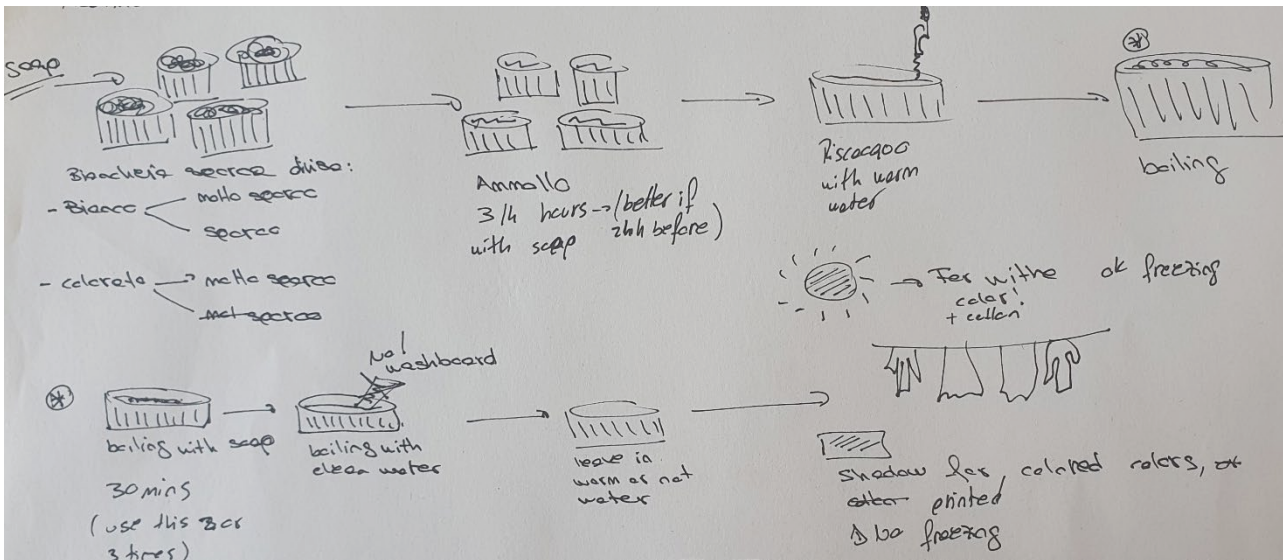 soap
Biancheria sporca divisa:
- Bianco
molto sporco
sporco
- colorato
molto sporco
sporco
Ammollo
3/4 hours → (better if
with soap 24h before)
Risciacquo
with warm
water
*
boiling
→ For withe
color!
+ cotton
ok freezing
*
boiling with soap
30 mins
(use this 2 or
3 times)
No!
washboard
boiling with
clean water
leave in
warm or not
water
shadow for, colored colors, or
printed
no freezing